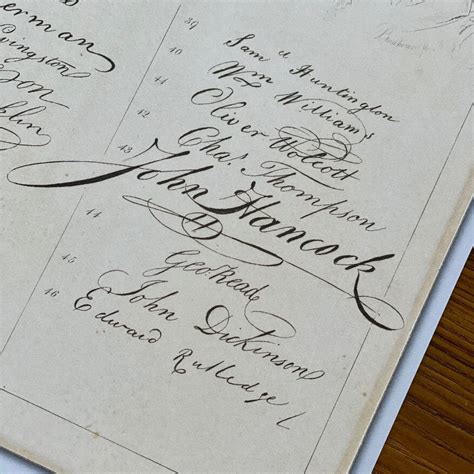 erman
ivingston
son
klin
39
Sam el Huntington
40
Wm Williams
41
Oliver Wolcott
42
Chas. Thompson
43
John Hancock
H
44
Geo Read
45
John Dickinson
46
Edward Rutledge